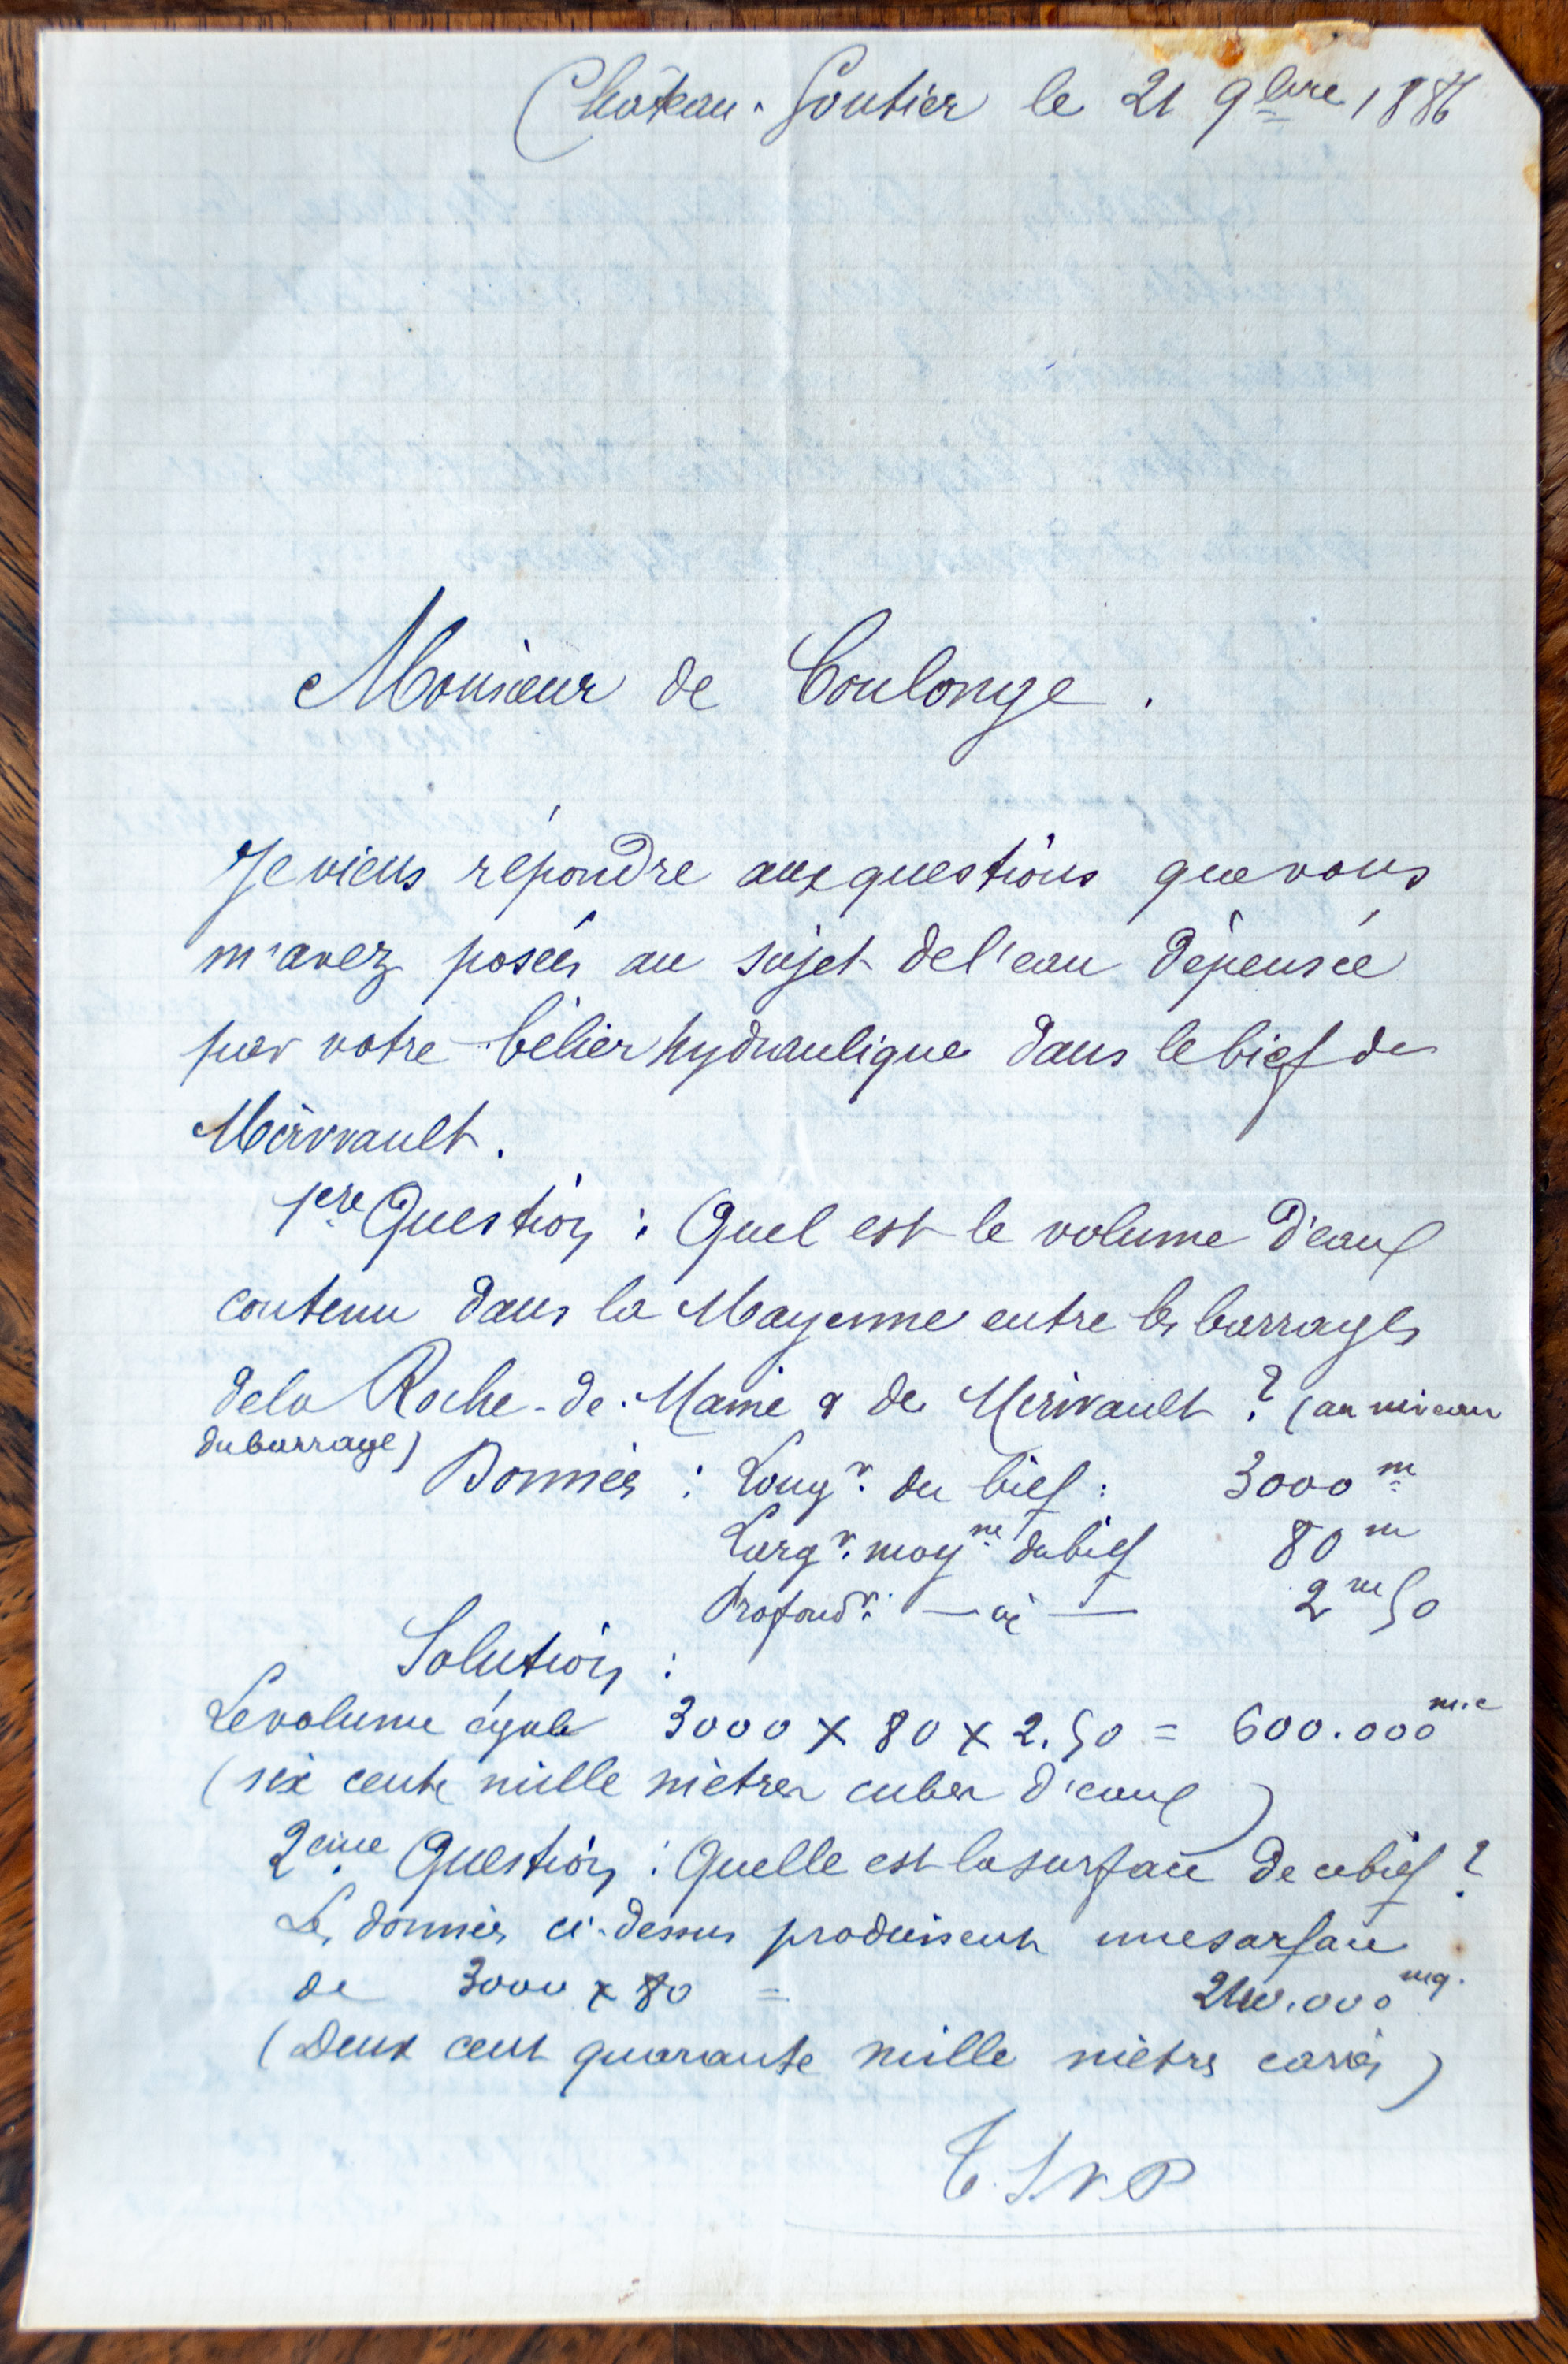 Château-Gontier le 21 9bre 1886
Monsieur de Coulonge.
Je viens répondre aux questions que vous
m'avez posées au sujet de l'eau dépensée
par votre bélier hydraulique dans le bief de
Mirvault.
1ere Question : Quel est le volume d'eau
contenu dans la Mayenne entre les barrages
de la Roche-de-Maine & de Mirvault ? (au niveau
du barrage)
Données : Longr. du bief : 3000 m
Largr. moyne du bief 80 m
Profondr. — 2 m 50
Solution :
Le volume égale 3000 x 80 x 2.50 = 600.000 m.c
(six cent mille mètres cubes d'eau)
2eme Question : Quelle est la surface de ce bief ?
Les données ci-dessus produisent une surface
de 3000 x 80 = 240.000 mq.
(Deux cent quarante mille mètres carrés)
T.S.V.P